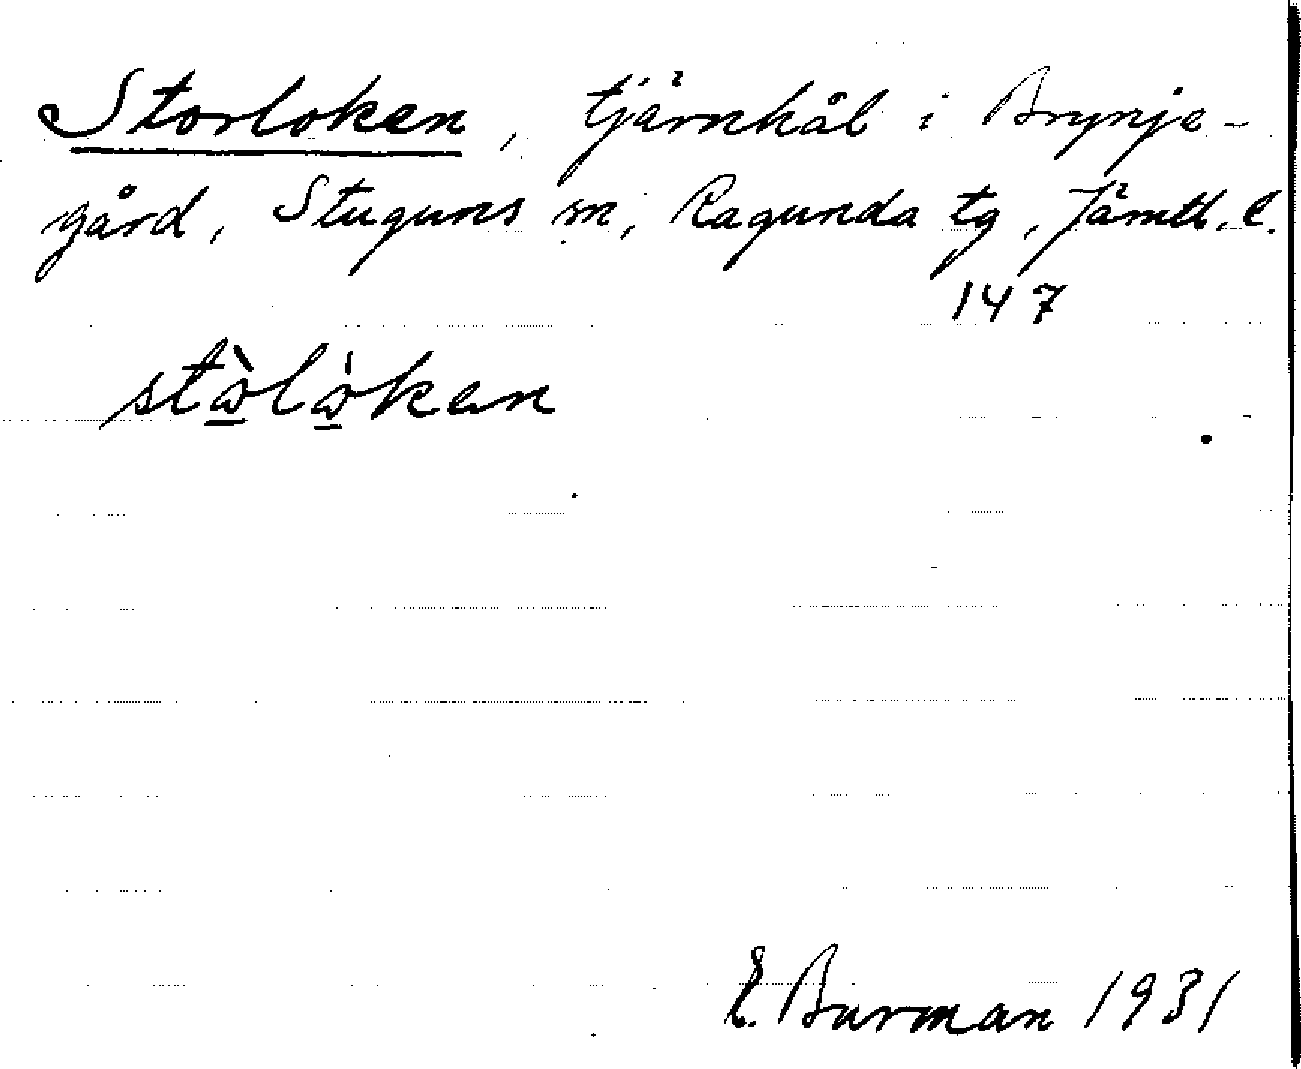 Storloken, tjärnhål i Brynje-
gård, Stuguns sn, Ragunda tg, Jämtl. l.
147
stɷ̀lɷ́ken
E. Burman 1931